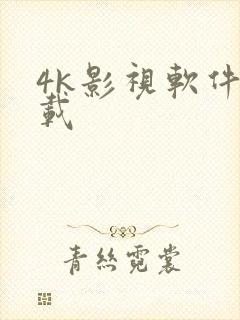 4K影視軟件
載
青絲霓裳